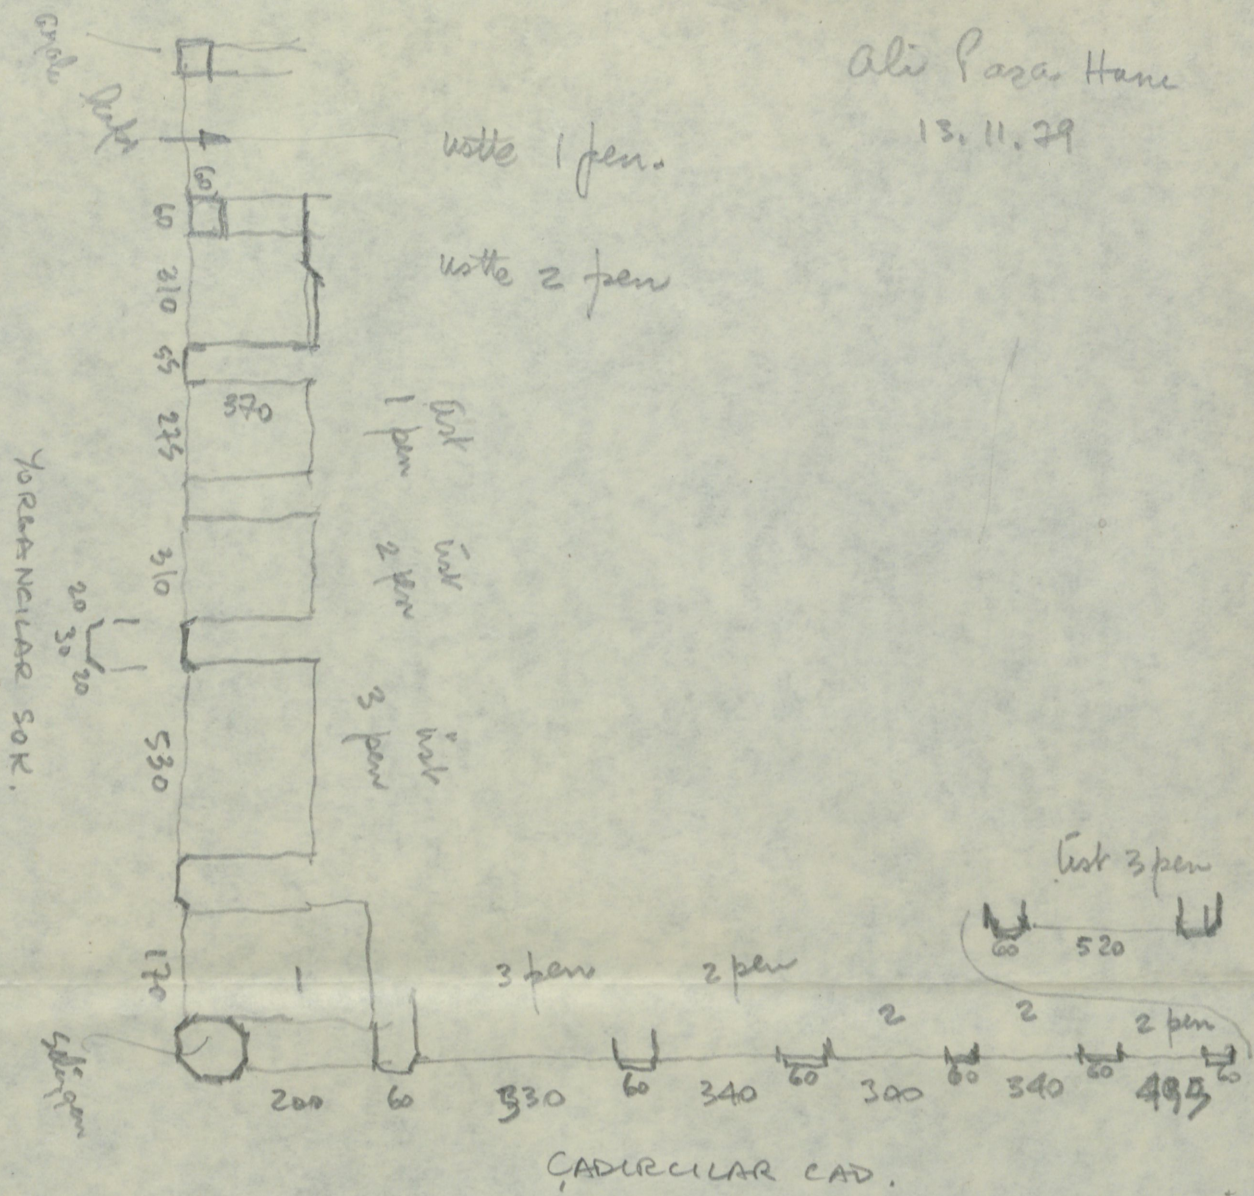 Ali Paşa Hanı
13.11.79
üstte 1 pen.
üstte 2 pen
60
60
210
55
275
370
üst
1 pen
310
üst
2 pen
20
30
20
530
üst
3 pen
YORGANCILAR SOK.
170
üst 3 pen
60
520
3 pen
2 pen
2
2
2 pen
200
60
530
60
340
60
300
60
340
60
495
60
ÇADIRCILAR CAD.